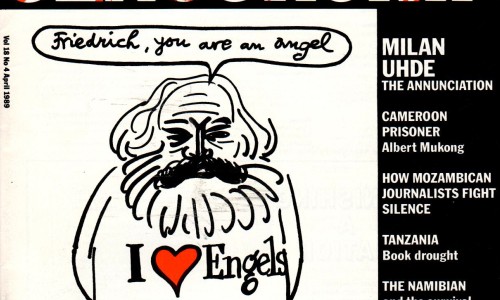 Friedrich, you are an angel
Vol 18 No 4 April 1989
I
Engels
MILAN
UHDE
THE ANNUNCIATION
CAMEROON
PRISONER
Albert Mukong
HOW MOZAMBICAN
JOURNALISTS FIGHT
SILENCE
TANZANIA
Book drought
THE NAMIBIAN
and the survival